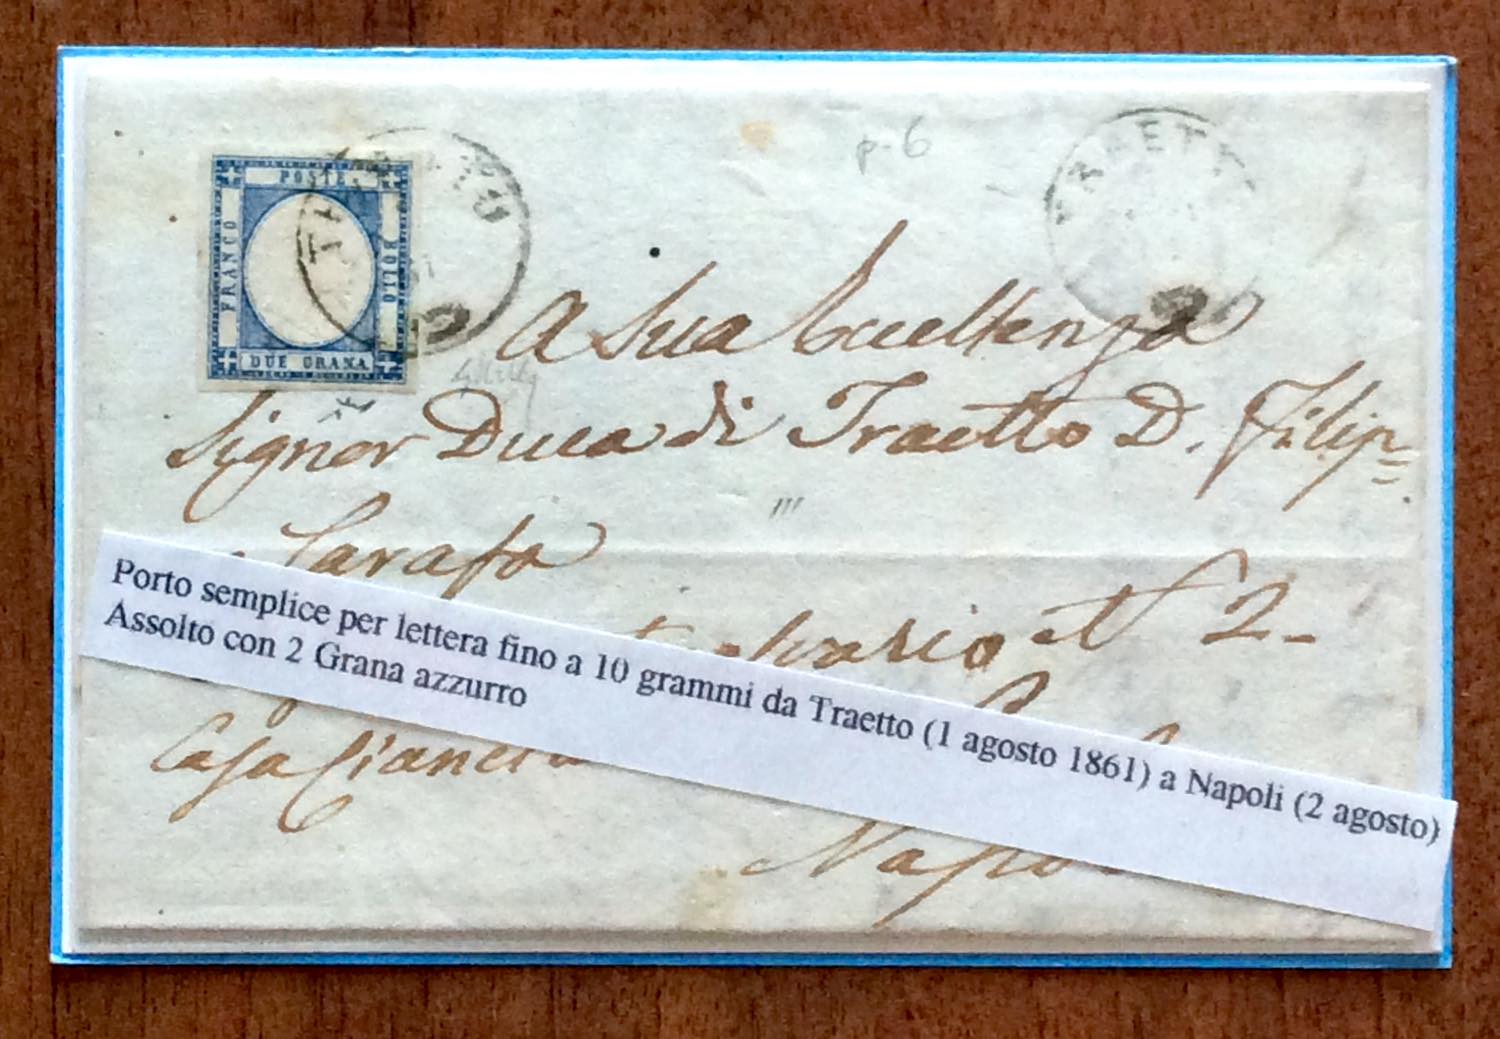 p. 6
TRAETTO
POSTE
FRANCO
BOLLO
DUE GRANA
TRAETTO
61
A Sua Eccellenza
Signor Duca di Traetto D. Filip=
Carafa
N 2-
Porto semplice per lettera fino a 10 grammi da Traetto (1 agosto 1861) a Napoli (2 agosto)
Assolto con 2 Grana azzurro
Casa
Napo